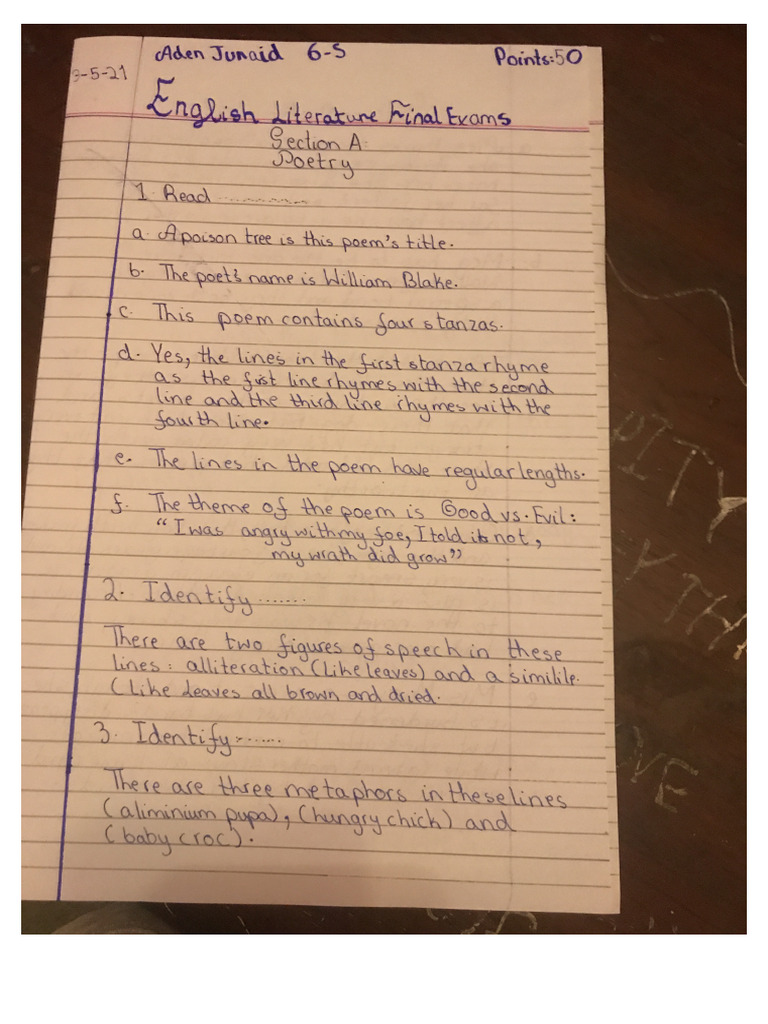 Aden Junaid 6-S Points:50
9-5-21
English Literature Final Exams
Section A:
Poetry
1. Read ..............
a. A poison tree is this poem's title.
b. The poet's name is William Blake.
c. This poem contains four stanzas.
d. Yes, the lines in the first stanza rhyme
as the first line rhymes with the second
line and the third line rhymes with the
fourth line.
e. The lines in the poem have regular lengths.
f. The theme of the poem is Good vs. Evil:
"I was angry with my foe, I told it not,
my wrath did grow"
2. Identify .......
There are two figures of speech in these
lines: alliteration (Like leaves) and a similile.
(Like leaves all brown and dried.
3. Identify .......
There are three metaphors in these lines
(aliminium pupa), (hungry chick) and
(baby croc).
PITY
THE